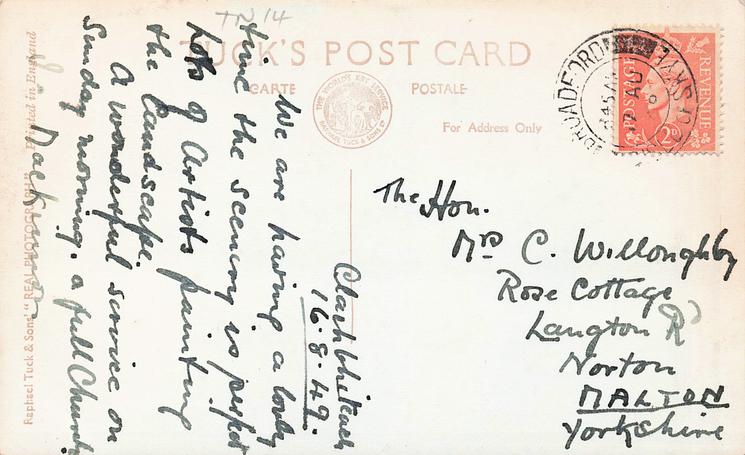 TN 14
TUCK'S POST CARD
CARTE POSTALE
THE WORLD'S ART SERVICE
RAPHAEL TUCK & SONS LD
For Address Only
Raphael Tuck & Sons' "REAL PHOTOGRAPH" Printed in England
BROADFORD
ISLE OF SKYE
8 45 AM
17 AU
POSTAGE
REVENUE
2D
16.8.49.
We are having a lovely
time the scenery is perfect
lots of Artists painting
the Landscape.
A wonderful service on
Sunday morning. a full Church
The Hon.
Mrs C. Willoughby
Rose Cottage
Langton Rd
Norton
MALTON
Yorkshire